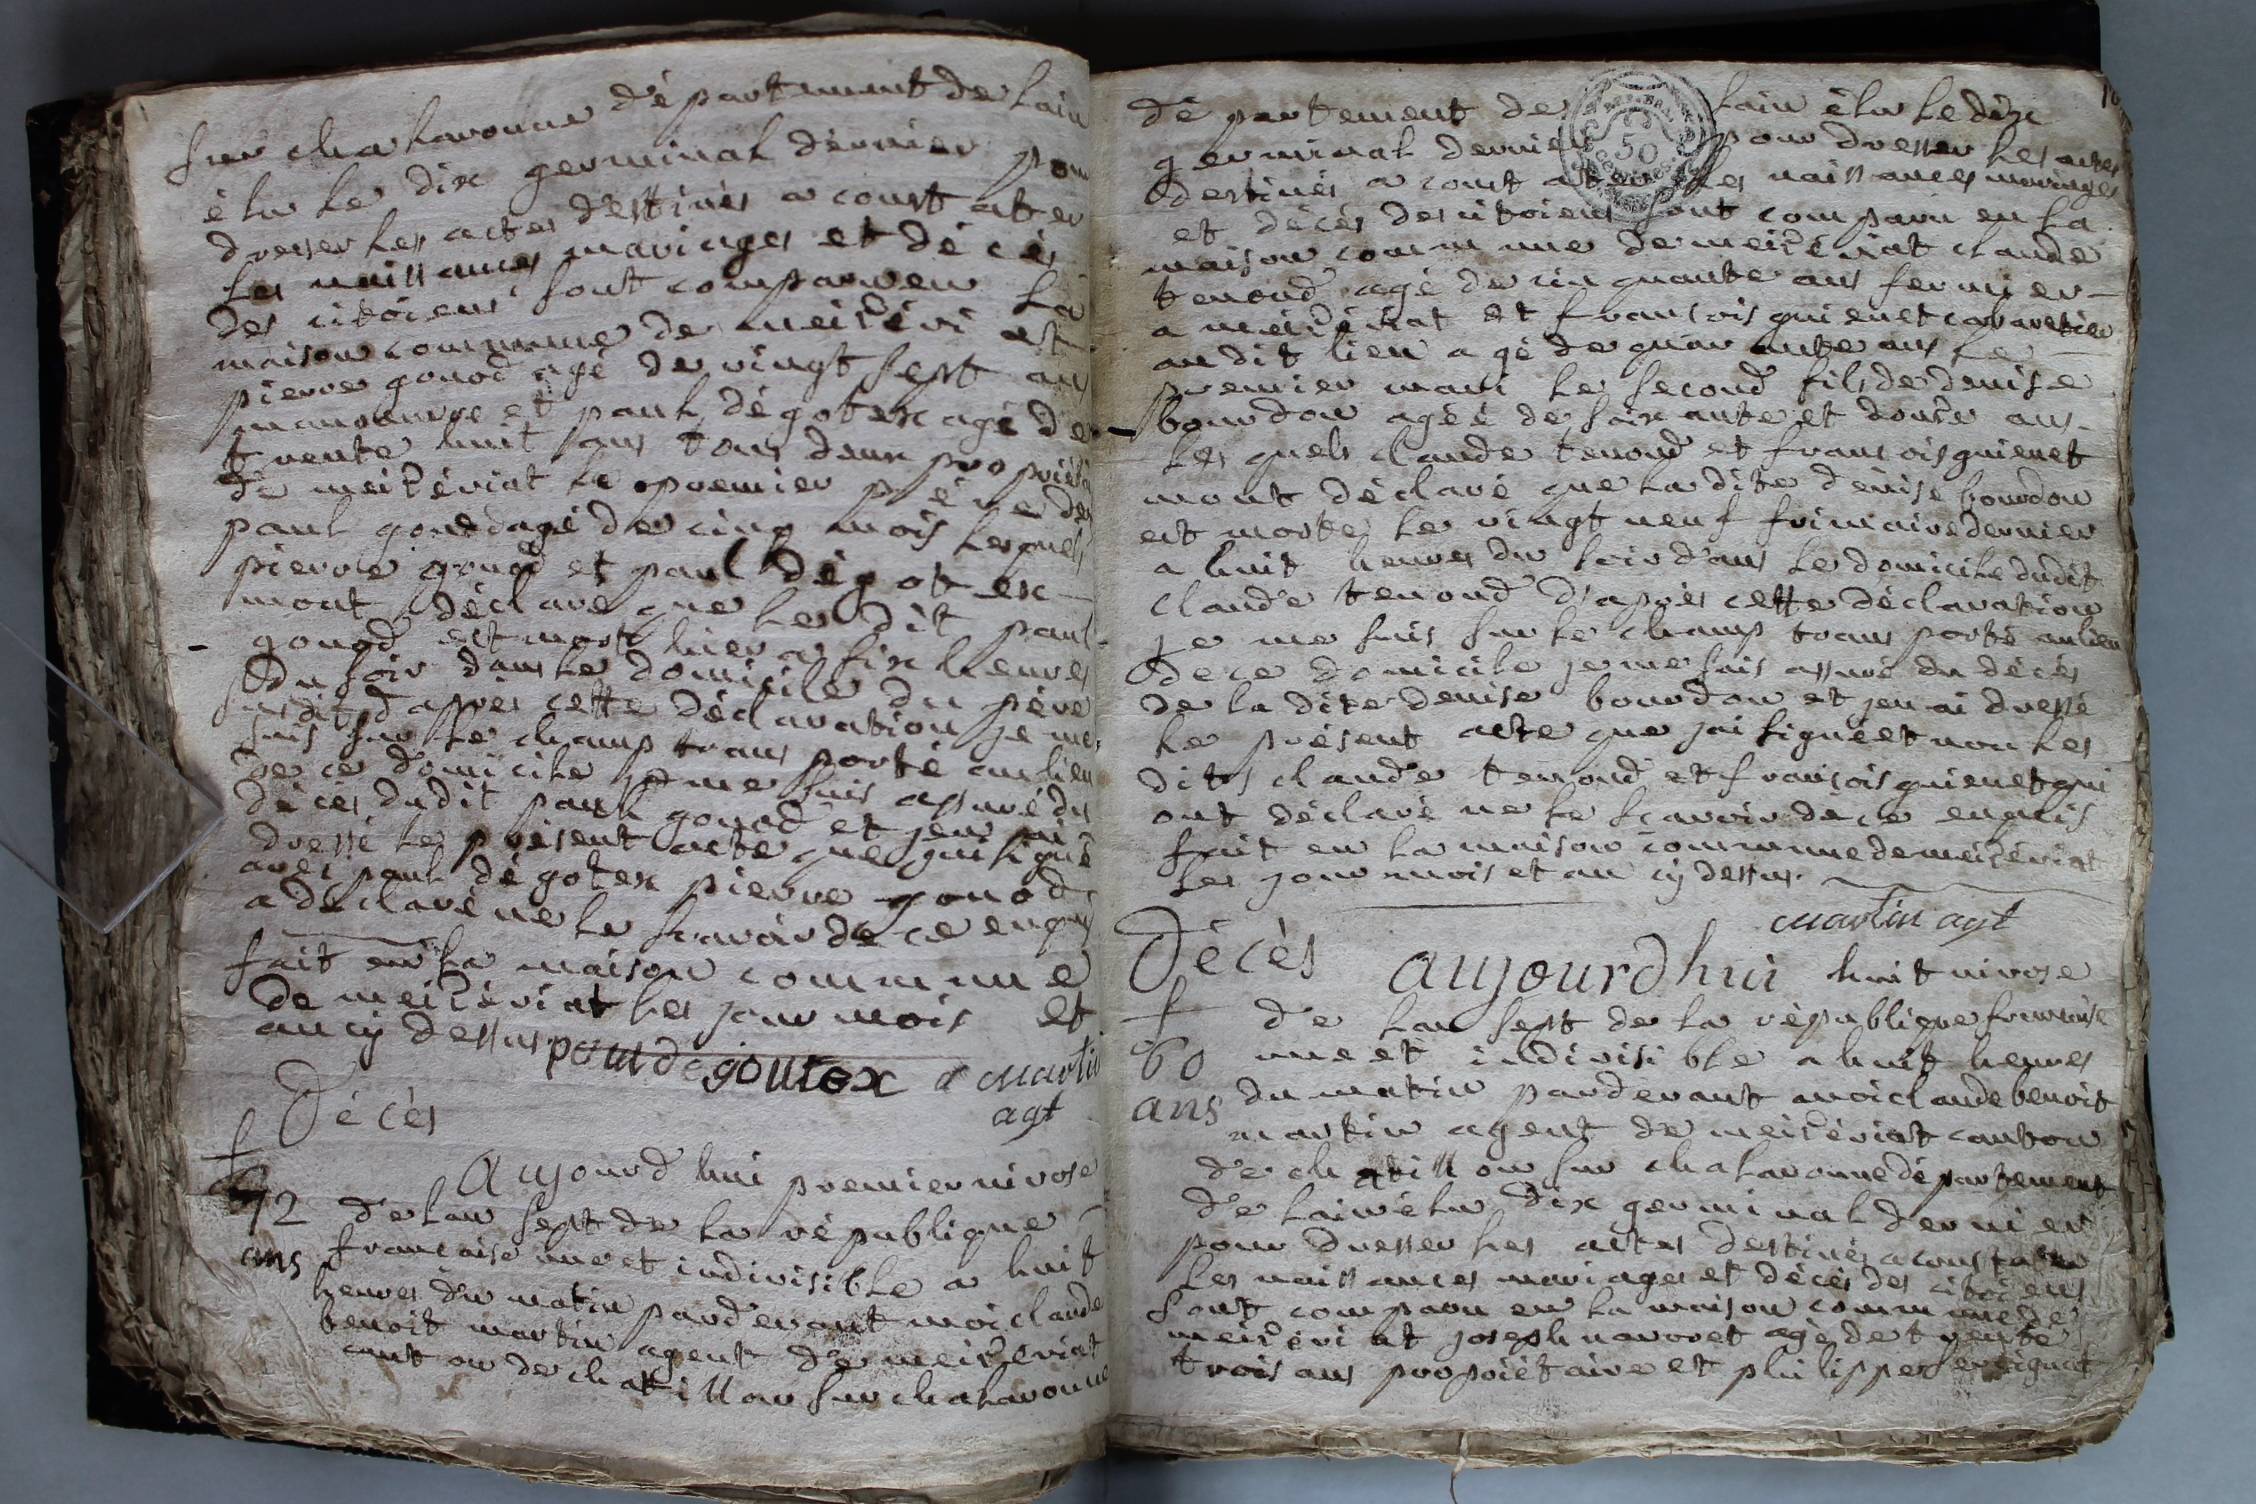 sur chalaronne département de lain
élu le dix germinal dernier pour
dresser les actes destinés a constater
les naissances mariages et décès
des citoiens sont comparu en la
maison commune de meizériat
pierre gonod agé de vingt sept ans
manoeuvre et paul dégotex agé de
trente huit ans tous deux propriét
de meizériat le premier père de
paul gonod agé de cinq mois lesquels
pierre gonod et paul dégotex
mont déclaré que le dit paul
gonod est mort hier a six heures
du soir dans le domicile du père
susdit d'après cette déclaration je me
suis sur le champ transporté au lieu
de ce domicile je me suis assuré du
décès dudit paul gonod et jen ai
dressé le présent acte que jai signé
avec paul dégotex pierre gonod
a déclaré ne le scavoir de ce enquis
fait en la maison commune
de meizériat les jour mois et
an cy dessus
martin
agt
Décès
†
72
ans
Aujourd hui premier nivose
de lan sept de la république
francaise une et indivisible a huit
heures du matin pardevant moi claude
benoit martin agent de meizériat
canton de chatillon sur chalaronne
département de lain élu le dix
germinal dernier pour dresser les actes
destinés a constater les naissances mariages
et décès des citoiens sont comparu en la
maison commune de meizériat claude
tenond agé de cinquante ans fermier
a meizériat et francois guienet cabaretier
audit lieu agé de quarante ans le
premier mari le second fils de denise
bourdon agée de soixante et douze ans
lesquels claude tenond et francois guienet
mont déclaré que la dite denise bourdon
est morte le vingt neuf frimaire dernier
a huit heures du soir dans le domicile dudit
claude tenond d'après cette déclaration
je me suis sur le champ transporté au lieu
de ce domicile je me suis assuré du décès
de la dite denise bourdon et jen ai dressé
le présent acte que jai signé et non les
dits claude tenond et francois guienet qui
ont déclaré ne le scavoir de ce enquis
fait en la maison commune de meizériat
les jour mois et an cy dessus.
martin agt
Décès
†
60
ans
aujourdhui huit nivose
de lan sept de la république francaise
une et indivisible a huit heures
du matin pardevant moi claude benoit
martin agent de meizériat canton
de chatillon sur chalaronne département
de lain élu dix germinal dernier
pour dresser les actes destinés a constater
les naissances mariages et décès des citoiens
sont comparu en la maison commune de
meizériat joseph navoret agé de trente
trois ans propriétaire et philippe